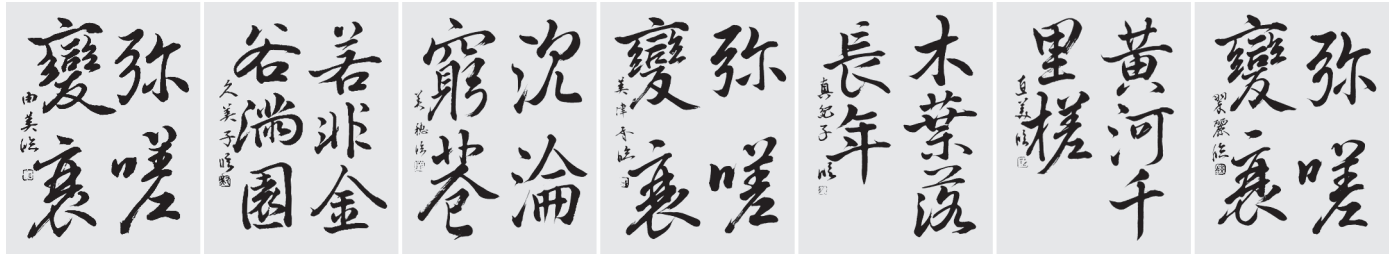 弥嗟
變衰
由美臨
若非金
谷滿園
久美子臨
沈淪
窮巷
美穂臨
弥嗟
變衰
木葉落
長年
臨
黄河千
里槎
直美臨
弥嗟
變衰
翠麗臨